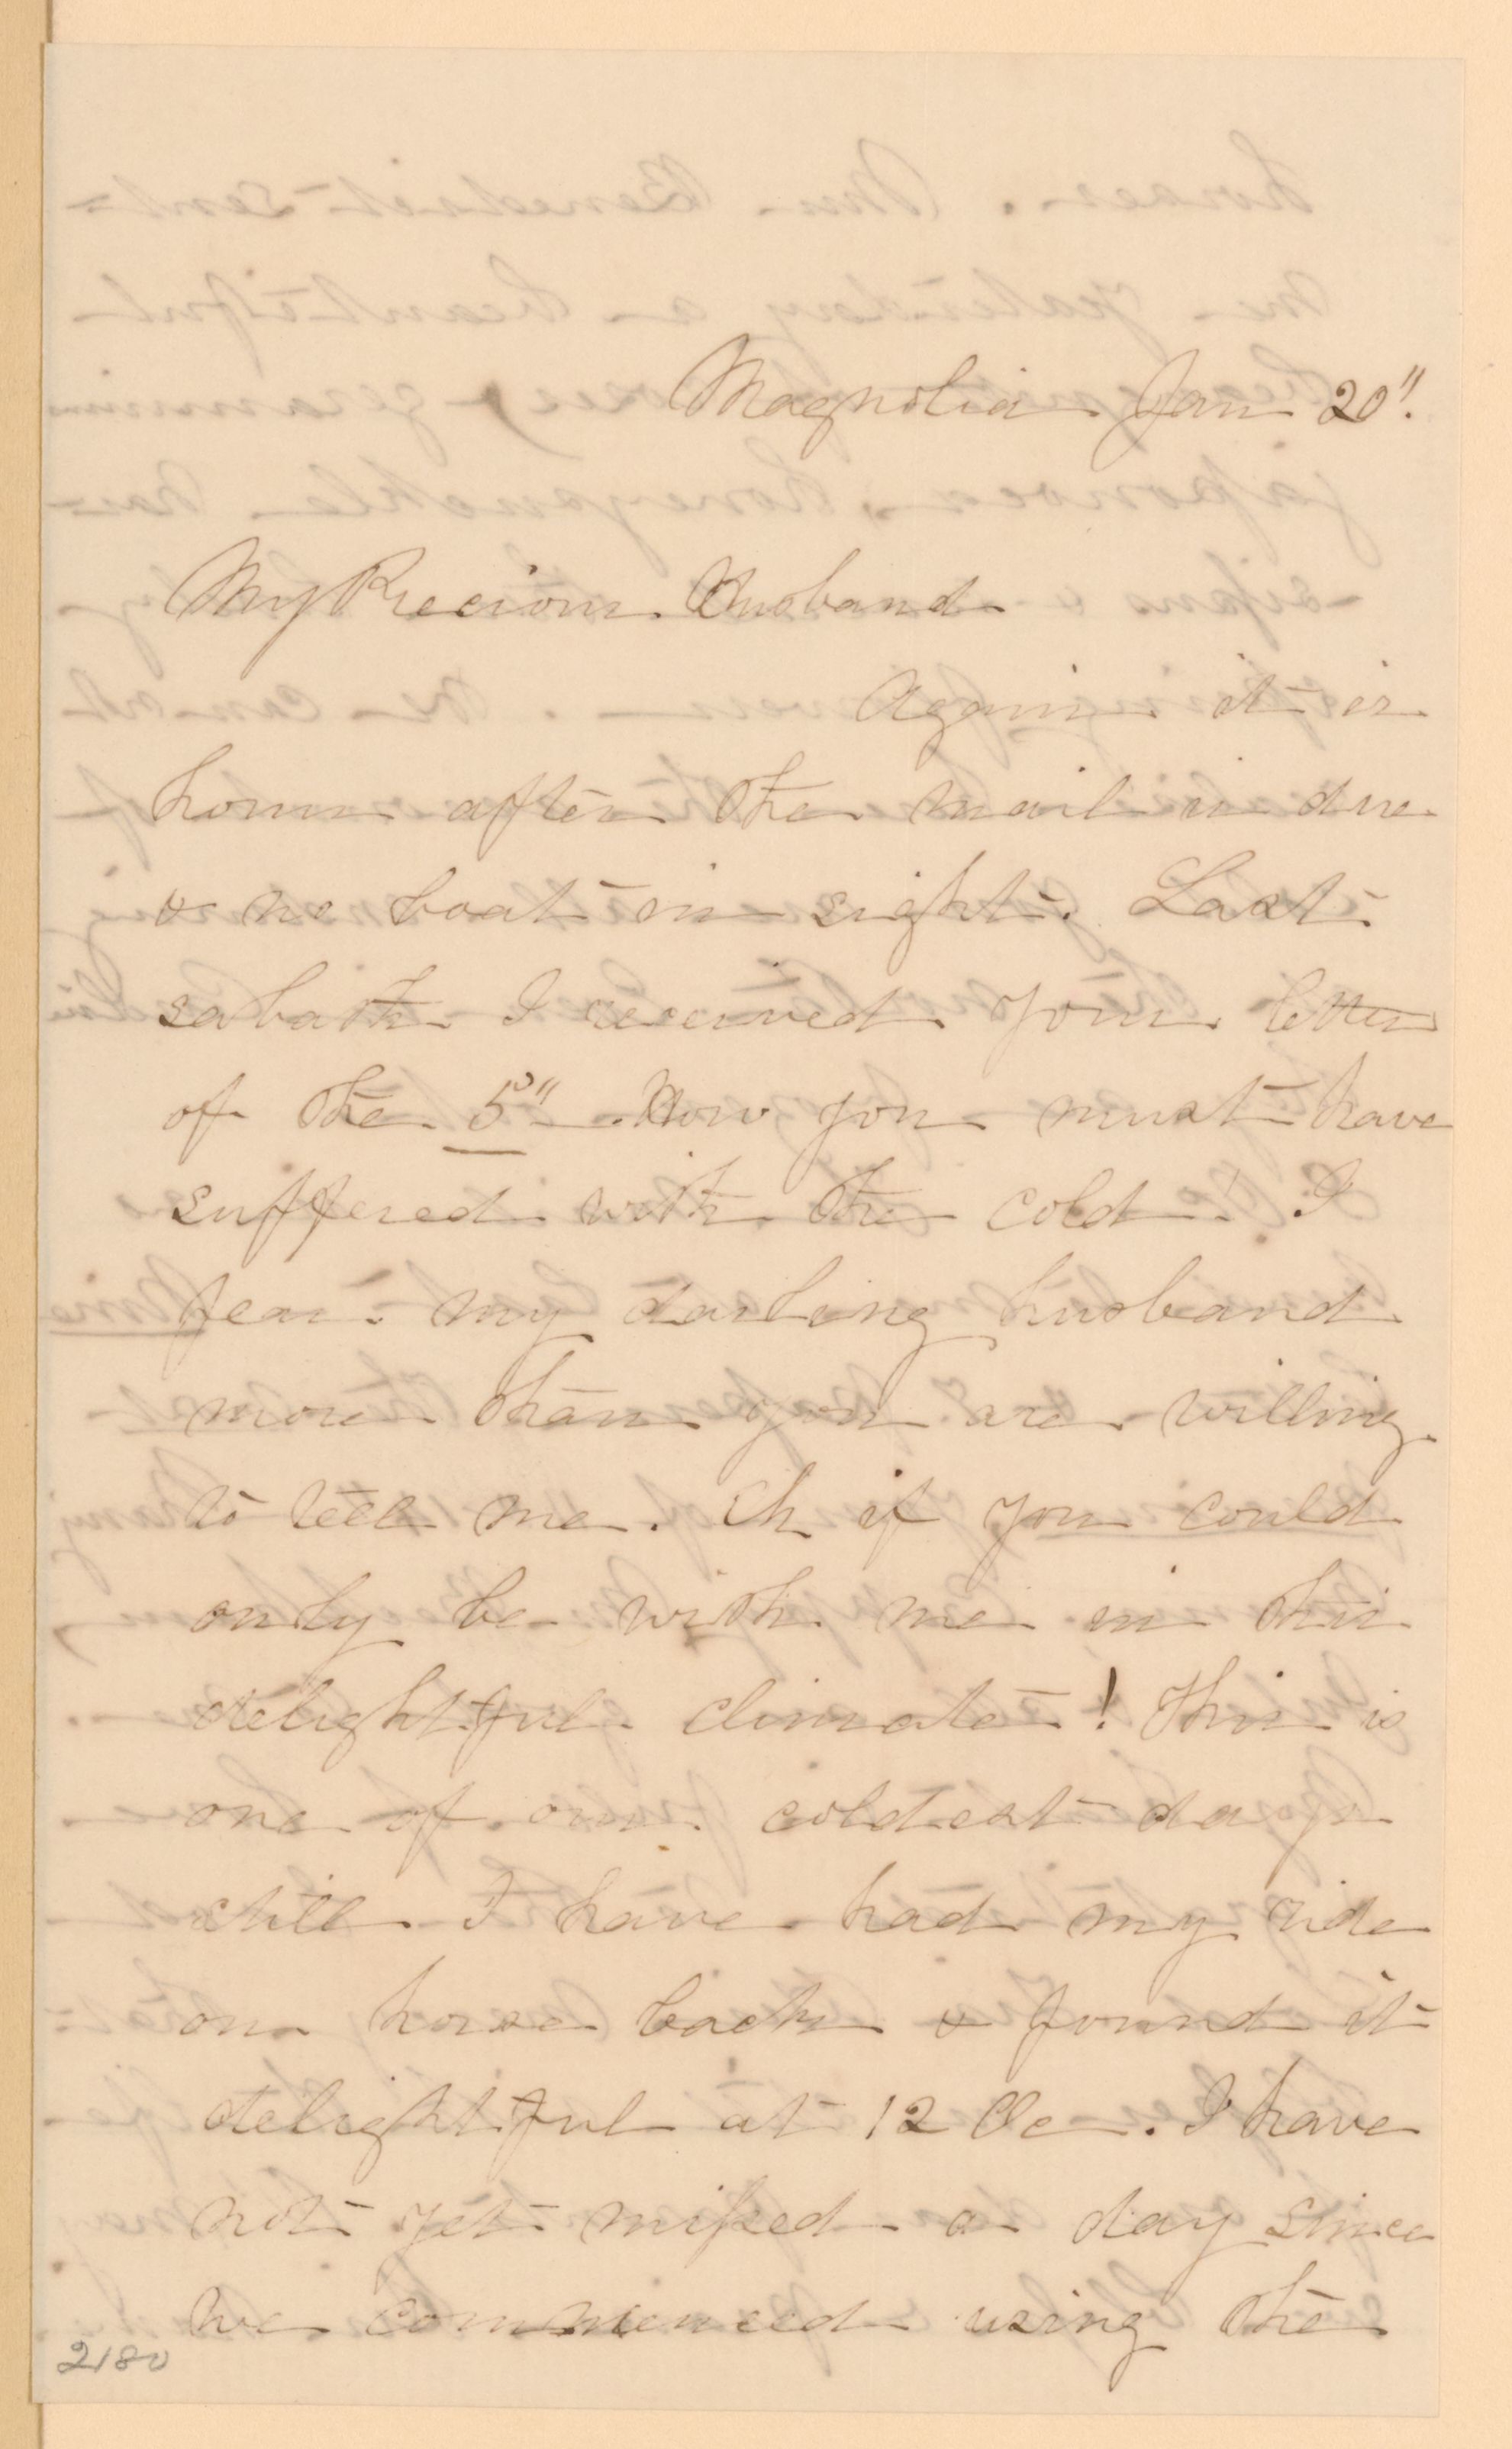 Magnolia Jan 20".
My Precious Husband
Again it is
hours after the mail is due
& no boat in sight. Last
sabath I received your letter
of the 5" How you must have
suffered with the cold! I
fear my darling husband
more than you are willing
to tell me. Oh if you could
only be with me in this
delightful climate! This is
one of our coldest days
still I have had my ride
on horse back & found it
delightful at 12 Oc. I have
not yet missed a day since
we commenced using the
2180